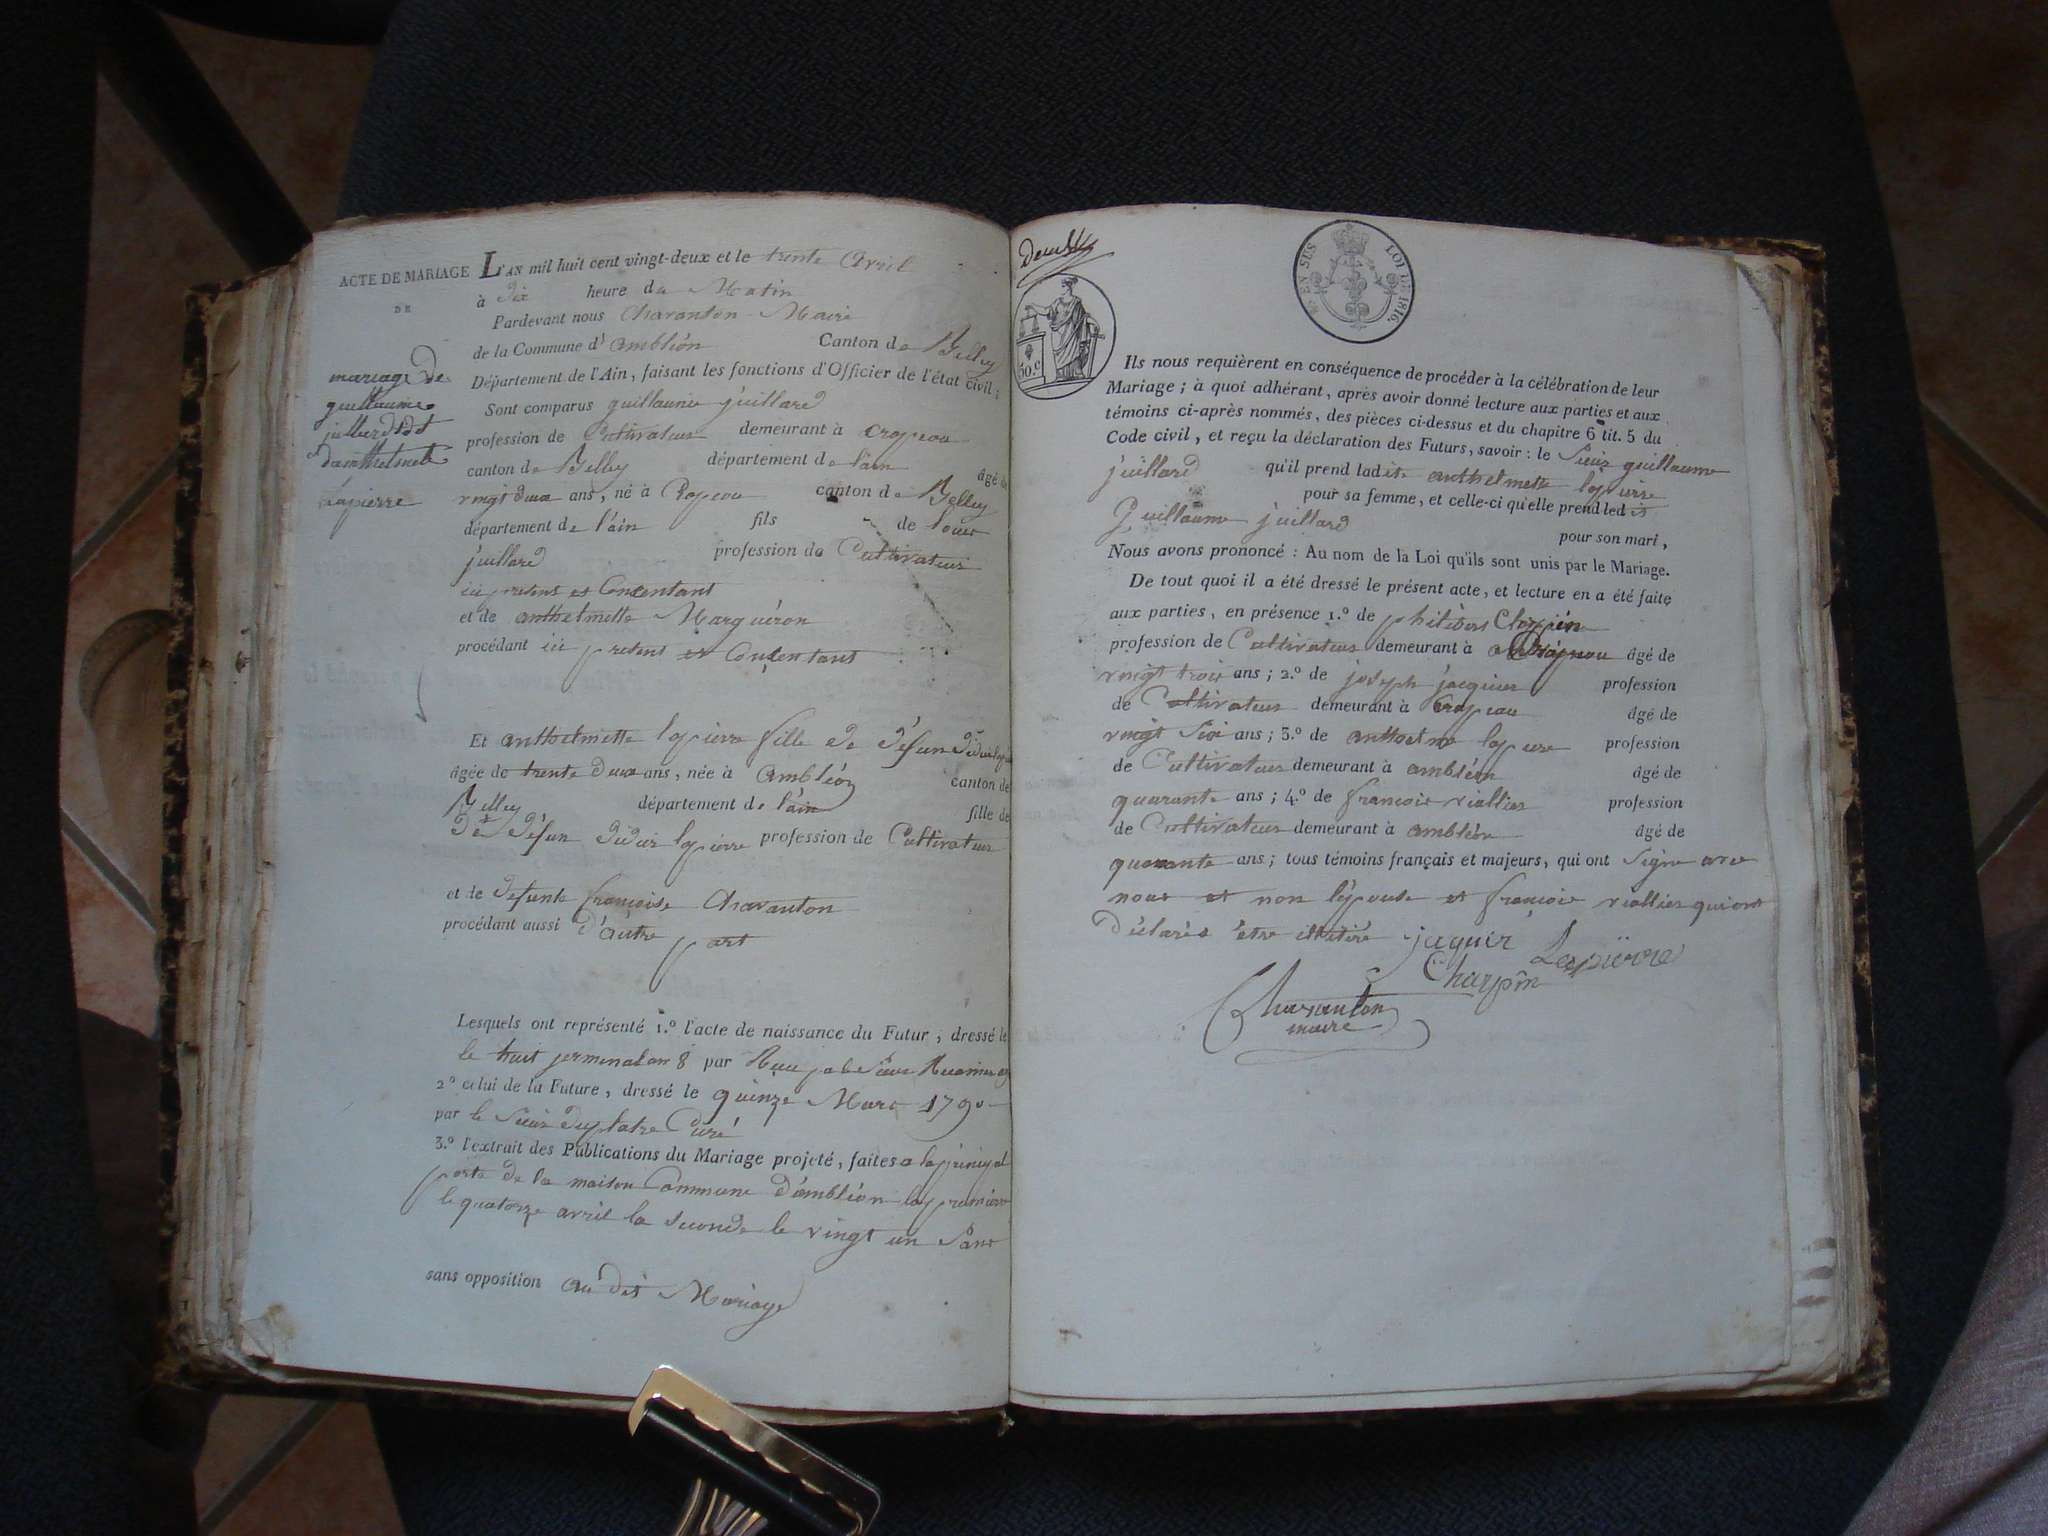 ACTE DE MARIAGE
DE
mariage de
guillaume
juillard et
d'anthelmette
lapierre
L'AN mil huit cent vingt-deux et le trente avril
à dix heure du Matin
Pardevant nous Charanton Maire
de la Commune d'ambléon Canton de Belley
Département de l'Ain, faisant les fonctions d'Officier de l'état civil;
Sont comparus guillaume juillard
profession de Cultivateur demeurant à Crapeou
canton de Belley département de l'ain âgé de
vingt deux ans, né à Crapeou canton de Belley
département de l'ain fils de
juillard profession de Cultivateur
ici present et Consentant
et de anthelmette Marguéron
procédant ici present et Consentant
Et anthelmette lapierre fille de défun didier
âgée de trente deux ans, née à Ambléon canton de
Belley département de l'ain fille de
de défun didier lapierre profession de Cultivateur
et de defunte francoise Charanton
procédant aussi d'autre
part
Lesquels ont représenté 1.º l'acte de naissance du Futur, dressé le
le huit jerminal an 8 par
2º celui de la Future, dressé le quinze Mars 1790
par le Sieur duplatre Curé
3.º l'extrait des Publications du Mariage projeté, faites a la principal
porte de la maison Commune d'ambléon la premiere
le quatorze avril la seconde le vingt un Sans
sans opposition au dit Mariage
50.c
LOI DE 1816.
Ils nous requièrent en conséquence de procéder à la célébration de leur
Mariage; à quoi adhérant, après avoir donné lecture aux parties et aux
témoins ci-après nommés, des pièces ci-dessus et du chapitre 6 tit. 5 du
Code civil, et reçu la déclaration des Futurs, savoir: le Sieur guillaume
juillard qu'il prend ladite anthelmette lapierre
pour sa femme, et celle-ci qu'elle prend ledit
Guillaume juillard pour son mari,
Nous avons prononcé: Au nom de la Loi qu'ils sont unis par le Mariage.
De tout quoi il a été dressé le présent acte, et lecture en a été faite
aux parties, en présence 1.º de philibert
profession de Cultivateur demeurant à âgé de
vingt trois ans; 2.º de joseph jacquier profession
de Cultivateur demeurant à Crapeou âgé de
vingt six ans; 3.º de anthelme lapierre profession
de Cultivateur demeurant à ambléon âgé de
quarante ans; 4.º de francois viallier profession
de Cultivateur demeurant à ambléon âgé de
quarante ans; tous témoins français et majeurs, qui ont signe avec
nous et non l'épouse et francois viallier qui ont
déclarés être illitiré jaquir Lapierre
Charpin
Charanton
maire